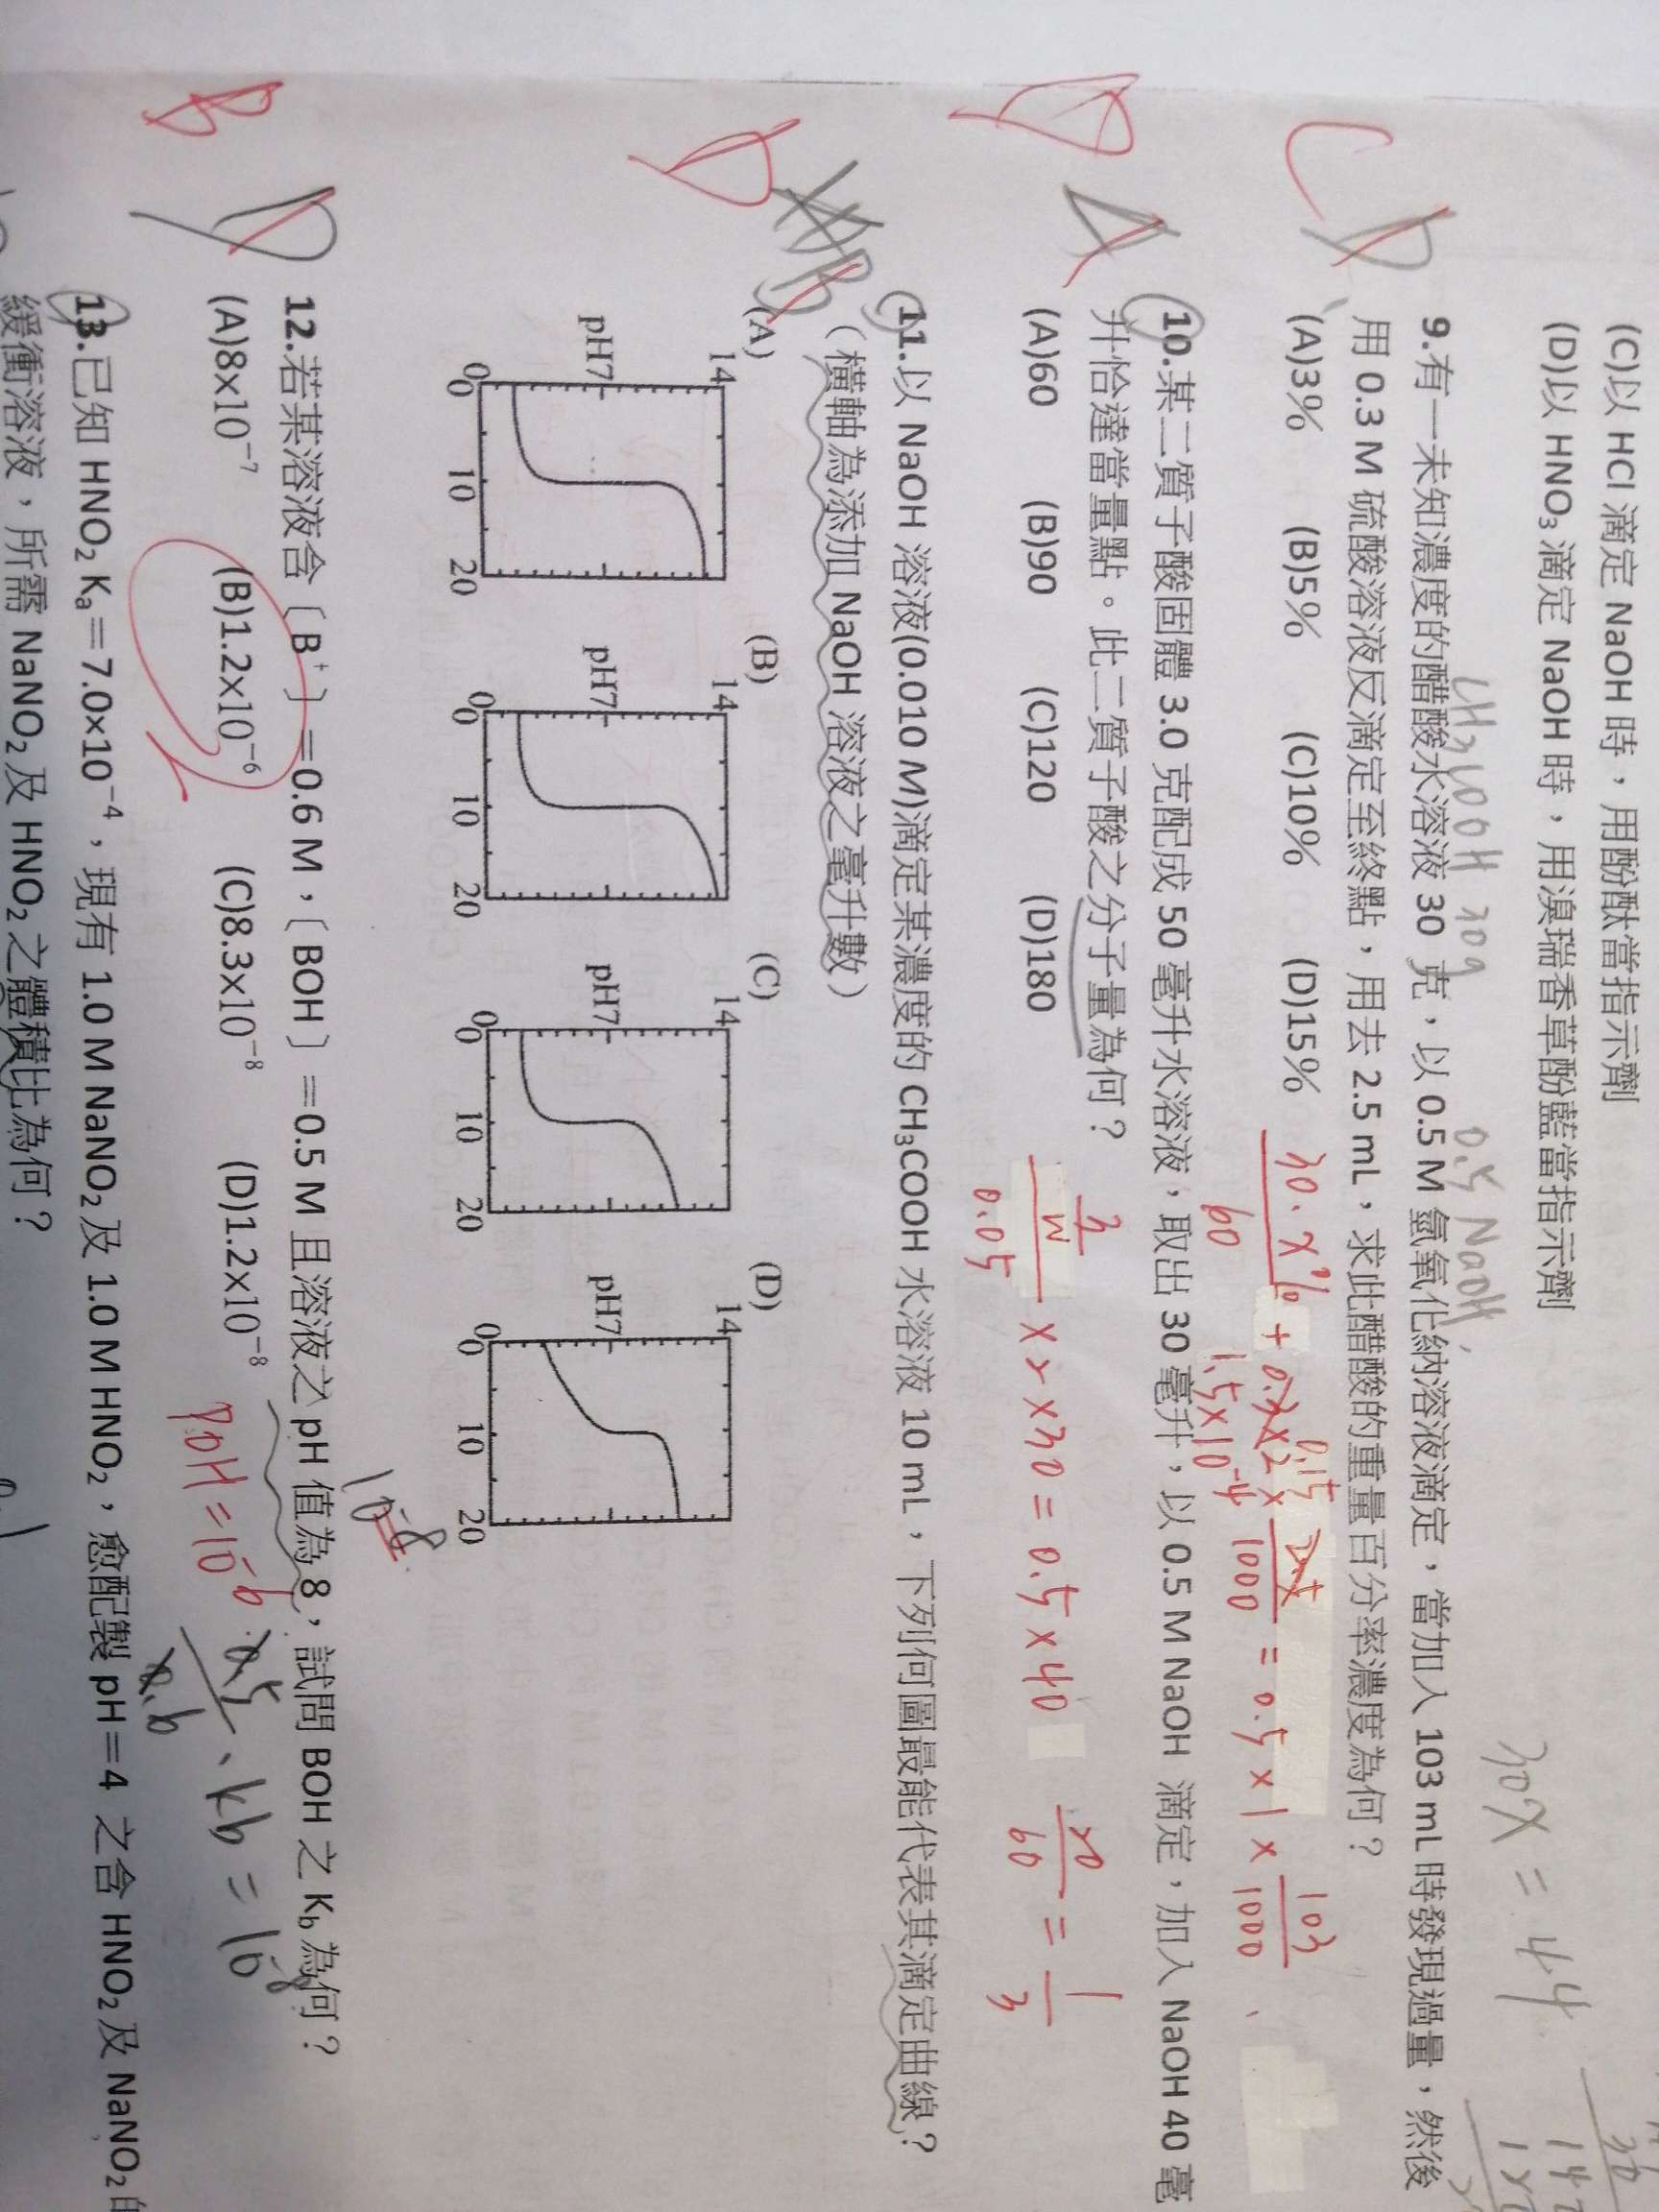 (C)以 HCl 滴定 NaOH 時，用酚酞當指示劑
(D)以 HNO₃ 滴定 NaOH 時，用溴瑞香草酚藍當指示劑
30x = 4.4
CH₃COOH 30g
0.5 NaOH
C
D
9.有一未知濃度的醋酸水溶液 30 克，以 0.5 M 氫氧化納溶液滴定，當加入 103 mL 時發現過量，然後
用 0.3 M 硫酸溶液反滴定至終點，用去 2.5 mL，求此醋酸的重量百分率濃度為何？
(A)3% (B)5% (C)10% (D)15%
30·x% / 60 + 0.3×2× 2.5/1000 = 0.5×1× 103/1000
0.15
1.5×10⁻⁴
D
A
10.某二質子酸固體 3.0 克配成 50 毫升水溶液，取出 30 毫升，以 0.5 M NaOH 滴定，加入 NaOH 40 毫
升恰達當量點。此二質子酸之分子量為何？
(A)60 (B)90 (C)120 (D)180
3/M / 0.05 ×2×30 = 0.5×40
20/60 = 1/3
D
B
11.以 NaOH 溶液(0.010 M)滴定某濃度的 CH₃COOH 水溶液 10 mL，下列何圖最能代表其滴定曲線？
（橫軸為添加 NaOH 溶液之毫升數）
(A) (B) (C) (D)
14 14 14 14
pH7 pH7 pH7 pH7
0 0 0 0
0 10 20 0 10 20 0 10 20 0 10 20
10⁻⁸
B
D
12.若某溶液含〔B⁺〕=0.6 M，〔BOH〕=0.5 M 且溶液之 pH 值為 8，試問 BOH 之 K_b 為何？
(A)8x10⁻⁷ (B)1.2x10⁻⁶ (C)8.3x10⁻⁸ (D)1.2x10⁻⁸
POH=10⁻⁶
0.5/0.6 · kb = 10⁻⁸
13.已知 HNO₂ Kₐ＝7.0×10⁻⁴，現有 1.0 M NaNO₂ 及 1.0 M HNO₂，愈配製 pH＝4 之含 HNO₂ 及 NaNO₂ 的
緩衝溶液，所需 NaNO₂ 及 HNO₂ 之體積比為何？